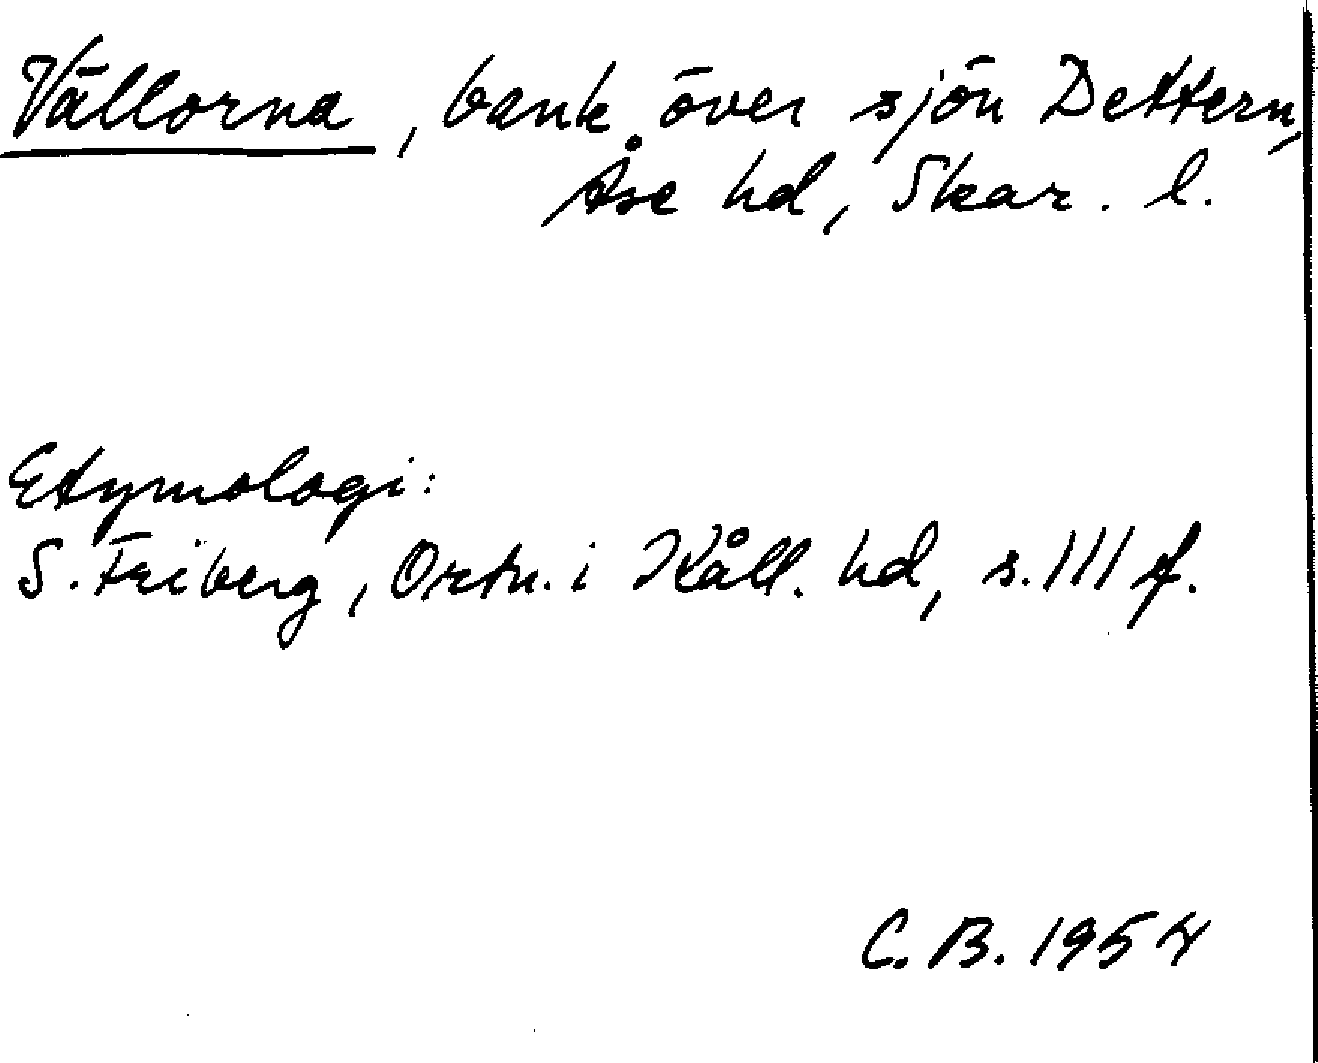 Vällorna, bank över sjön Dettern,
Åse hd, Skar. l.
Etymologi:
S. Friberg, Ortn. i Kåll. hd, s. 111 f.
C. B. 1954